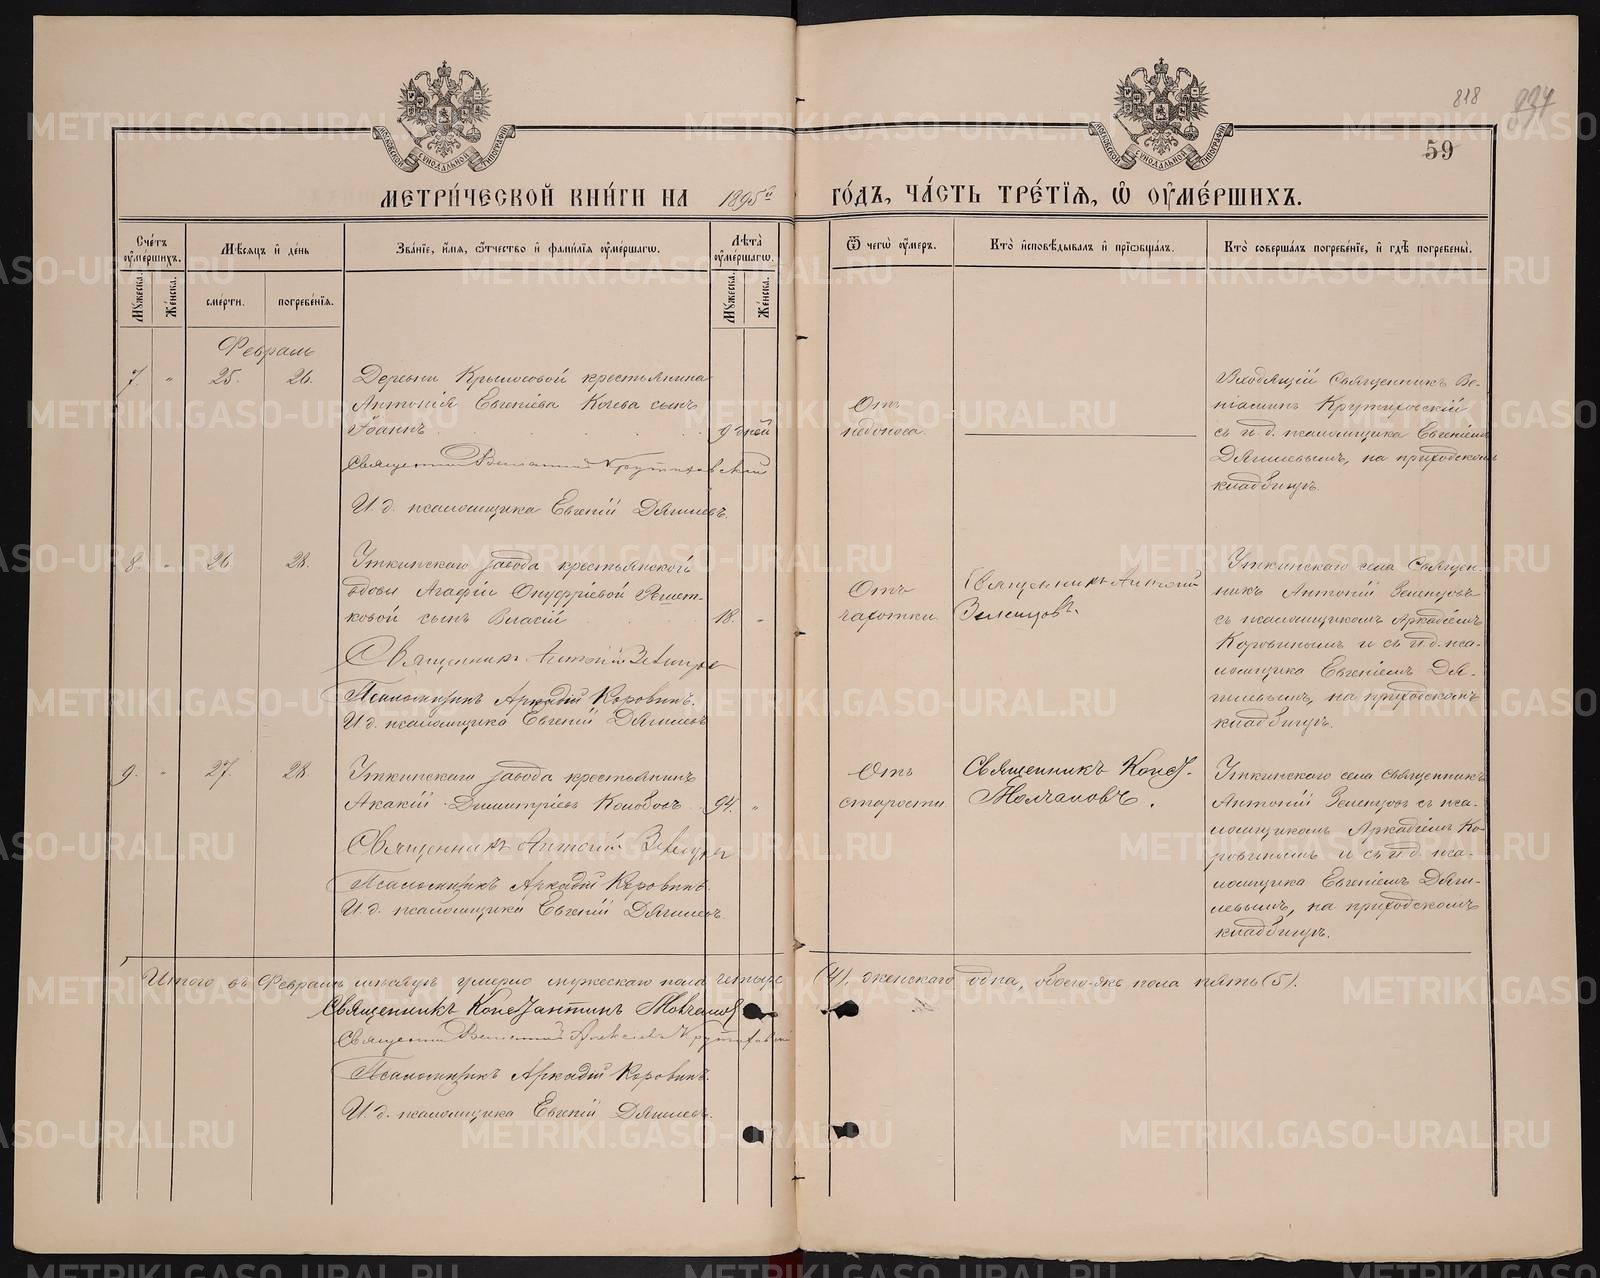 818
59
МЕТРИ́ЧЕСКОЙ КНИ́ГИ НА 1895й ГО́ДЪ, ЧА́СТЬ ТРЕ́ТІѦ, Ѡ ОУМЕ́РШИХЪ.
Сче́тъ оуме́ршихъ.
Мѣсяцъ и де́нь
Зва́ніе, и́мѧ, о́тчество и фами́лїѧ оуме́ршагѡ.
Лѣта̀ оуме́ршагѡ.
Ѿ чегѡ̀ оу́меръ.
Кто̀ и҆сповѣ́дывалъ и҆ прїѡбща́лъ.
Кто̀ соверша́лъ погребе́нїе, и҆ гдѣ̀ погребены̀.
Мꙋ́жеска.
Же́нска.
сме́рти.
погребе́нїѧ.
Мꙋ́жеска.
Же́нска.
Февраль
7. " 25. 26.
Деревни Крылосовой крестьянина
Антонія Евгеніева Кочева сынъ
Іоаннъ 9 дней
Священникъ Веніаминъ Крутиховскій
И. д. псаломщика Евгеній Дягилевъ.
Отъ
недоноса.
Входящій Священникъ Ве-
ніаминъ Крутиховскій
съ и. д. псаломщика Евгеніемъ
Дягилевымъ, на приходскомъ
кладбищѣ.
8. " 26 28.
Уткинскаго завода крестьянской
вдовы Агафіи Онуфріевой Решет-
ковой сынъ Власій 18. "
Священникъ Антоній Зеленцовъ
Псаломщикъ Аркадій Коровинъ.
И. д. псаломщика Евгеній Дягилевъ
Отъ
чахотки
Священникъ Антоній
Зеленцовъ.
Уткинскаго села Священ-
никъ Антоній Зеленцовъ
съ псаломщикомъ Аркадіемъ
Коровинымъ и съ и. д. пса-
ломщика Евгеніемъ Дя-
гилевымъ, на приходскомъ
кладбищѣ.
9. " 27. 28.
Уткинскаго завода крестьянинъ
Акакій Димитріевъ Колобовъ 94. "
Священникъ Антоній Зеленцовъ
Псаломщикъ Аркадій Коровинъ.
И. д. псаломщика Евгеній Дягилевъ.
Отъ
старости
Священникъ Конст.
Молчановъ.
Уткинскаго села священникъ
Антоній Зеленцовъ съ пса-
ломщикомъ Аркадіемъ Ко-
ровинымъ и съ и. д. пса-
ломщика Евгеніемъ Дяги-
левымъ, на приходскомъ
кладбищѣ.
Итого въ Февралѣ мѣсяцѣ умерло мужескаго пола четыре (4), женскаго одна, обоего-же пола пять (5).
Священникъ Константинъ Молчановъ
Священникъ Веніаминъ Крутиховскій
Псаломщикъ Аркадій Коровинъ.
И. д. псаломщика Евгеній Дягилевъ.
METRIKI.GASO-URAL.RU